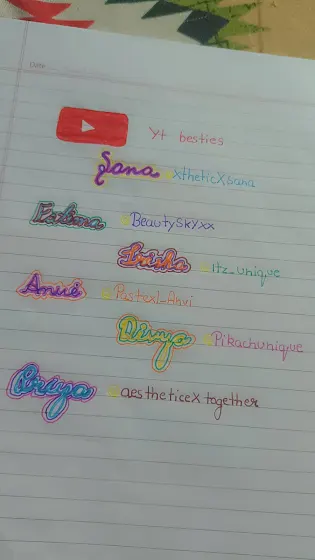 Date
Yt besties
Sana xtheticXsana
BeautySkyxx
Itz_unique
Anvi Pastexl_Anvi
Divya Pikachunique
Priya aestheticeX together